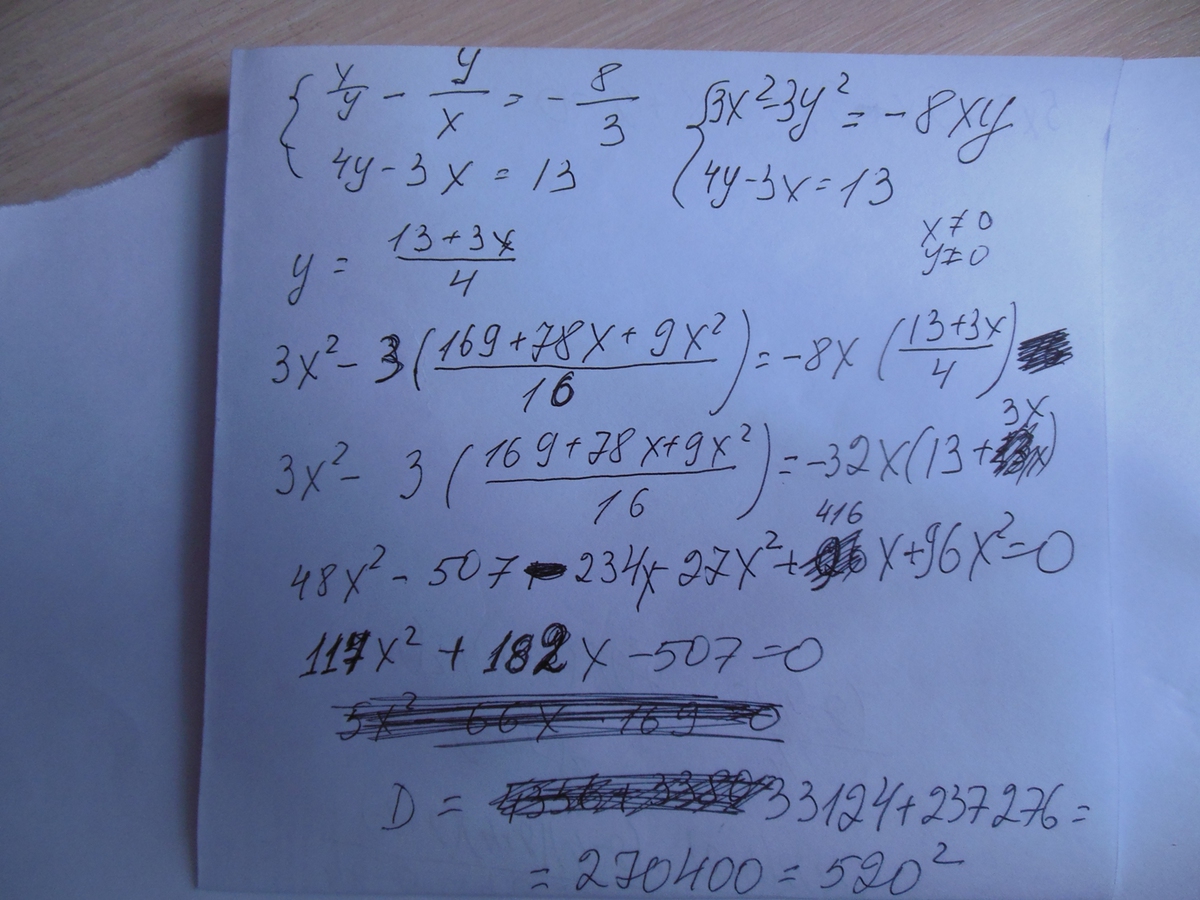 { x/y - y/x = - 8/3 { 3x² - 3y² = - 8xy
4y - 3x = 13 4y - 3x = 13
x ≠ 0
y = (13 + 3x)/4 y ≠ 0
3x² - 3 ( (169 + 78x + 9x²)/16 ) = - 8x ( (13 + 3x)/4 )
3x² - 3 ( (169 + 78x + 9x²)/16 ) = - 32x (13 + 3x)
48x² - 507 - 234x - 27x² + 416x + 96x² = 0
117x² + 182x - 507 = 0
5x² - 66x - 169 = 0
D = 33124 + 237276 =
= 270400 = 520²